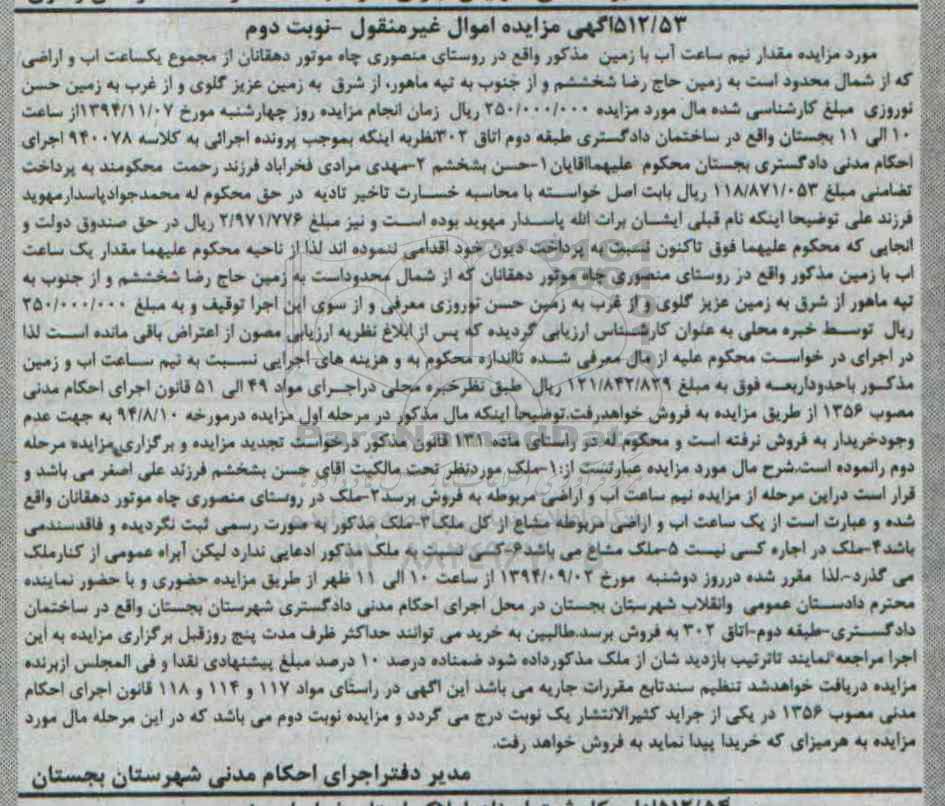 ۵۱۲/۵۳آگهی مزایده اموال غیرمنقول -نوبت دوم
مورد مزایده مقدار نیم ساعت آب با زمین مذکور واقع در روستای منصوری چاه موتور دهقانان از مجموع یکساعت اب و اراضی
که از شمال محدود است به زمین حاج رضا شخششم و از جنوب به تپه ماهور، از شرق به زمین عزیز گلوی و از غرب به زمین حسن
نوروزی مبلغ کارشناسی شده مال مورد مزایده ۲۵۰/۰۰۰/۰۰۰ ریال زمان انجام مزایده روز چهارشنبه مورخ ۱۳۹۴/۱۱/۰۷از ساعت
۱۰ الی ۱۱ بجستان واقع در ساختمان دادگستری طبقه دوم اتاق ۳۰۲نظربه اینکه بموجب پرونده اجرائی به کلاسه ۹۴۰۰۷۸ اجرای
احکام مدنی دادگستری بجستان محکوم علیهمااقایان۱-حسن بشخشم ۲-مهدی مرادی فخراباد فرزند رحمت محکومند به پرداخت
تضامنی مبلغ ۱۱۸/۸۷۱/۰۵۳ ریال بابت اصل خواسته با محاسبه خسارت تاخیر تادیه در حق محکوم له محمدجوادپاسدارمهوید
فرزند علی توضیحا اینکه نام قبلی ایشان برات الله پاسدار مهوید بوده است و نیز مبلغ ۲/۹۷۱/۷۷۶ ریال در حق صندوق دولت و
انجایی که محکوم علیهما فوق تاکنون نسبت به پرداخت دیون خود اقدامی ننموده اند لذا از ناحیه محکوم علیهما مقدار یک ساعت
اب با زمین مذکور واقع در روستای منصوری چاه موتور دهقانان که از شمال محدوداست به زمین حاج رضا شخششم و از جنوب به
تپه ماهور از شرق به زمین عزیز گلوی و از غرب به زمین حسن نوروزی معرفی و از سوی این اجرا توقیف و به مبلغ ۲۵۰/۰۰۰/۰۰۰
ریال توسط خبره محلی به عنوان کارشناس ارزیابی گردیده که پس از ابلاغ نظریه ارزیابی مصون از اعتراض باقی مانده است لذا
در اجرای در خواست محکوم علیه از مال معرفی شده تااندازه محکوم به و هزینه های اجرایی نسبت به نیم ساعت اب و زمین
مذکور باحدوداربعه فوق به مبلغ ۱۲۱/۸۴۲/۸۲۹ ریال طبق نظرخبره محلی دراجرای مواد ۴۹ الی ۵۱ قانون اجرای احکام مدنی
مصوب ۱۳۵۶ از طریق مزایده به فروش خواهدرفت.توضیحا اینکه مال مذکور در مرحله اول مزایده درمورخه ۹۴/۸/۱۰ به جهت عدم
وجودخریدار به فروش نرفته است و محکوم له در راستای ماده ۱۳۱ قانون مذکور درخواست تجدید مزایده و برگزاری مزایده مرحله
دوم رانموده است.شرح مال مورد مزایده عبارتست از:۱-ملک موردنظر تحت مالکیت اقای حسن بشخشم فرزند علی اصغر می باشد و
قرار است دراین مرحله از مزایده نیم ساعت آب و اراضی مربوطه به فروش برسد۲-ملک در روستای منصوری چاه موتور دهقانان واقع
شده و عبارت است از یک ساعت اب و اراضی مربوطه مشاع از کل ملک۳-ملک مذکور به صورت رسمی ثبت نگردیده و فاقدسندمی
باشد۴-ملک در اجاره کسی نیست ۵-ملک مشاع می باشد۶-کسی نسبت به ملک مذکور ادعایی ندارد لیکن آبراه عمومی از کنارملک
می گذرد-.لذا مقرر شده درروز دوشنبه مورخ ۱۳۹۴/۰۹/۰۲ از ساعت ۱۰ الی ۱۱ ظهر از طریق مزایده حضوری و با حضور نماینده
محترم دادستان عمومی وانقلاب شهرستان بجستان در محل اجرای احکام مدنی دادگستری شهرستان بجستان واقع در ساختمان
دادگستری-طبقه دوم-اتاق ۳۰۲ به فروش برسد.طالبین به خرید می توانند حداکثر ظرف مدت پنج روزقبل برگزاری مزایده به این
اجرا مراجعه نمایند تاترتیب بازدید شان از ملک مذکورداده شود ضمناده درصد ۱۰ درصد مبلغ پیشنهادی نقدا و فی المجلس ازبرنده
مزایده دریافت خواهدشد تنظیم سندتابع مقررات جاریه می باشد این اگهی در راستای مواد ۱۱۷ و ۱۱۴ و ۱۱۸ قانون اجرای احکام
مدنی مصوب ۱۳۵۶ در یکی از جراید کثیرالانتشار یک نوبت درج می گردد و مزایده نوبت دوم می باشد که در این مرحله مال مورد
مزایده به هرمیزای که خریدا پیدا نماید به فروش خواهد رفت.
مدیر دفتراجرای احکام مدنی شهرستان بجستان